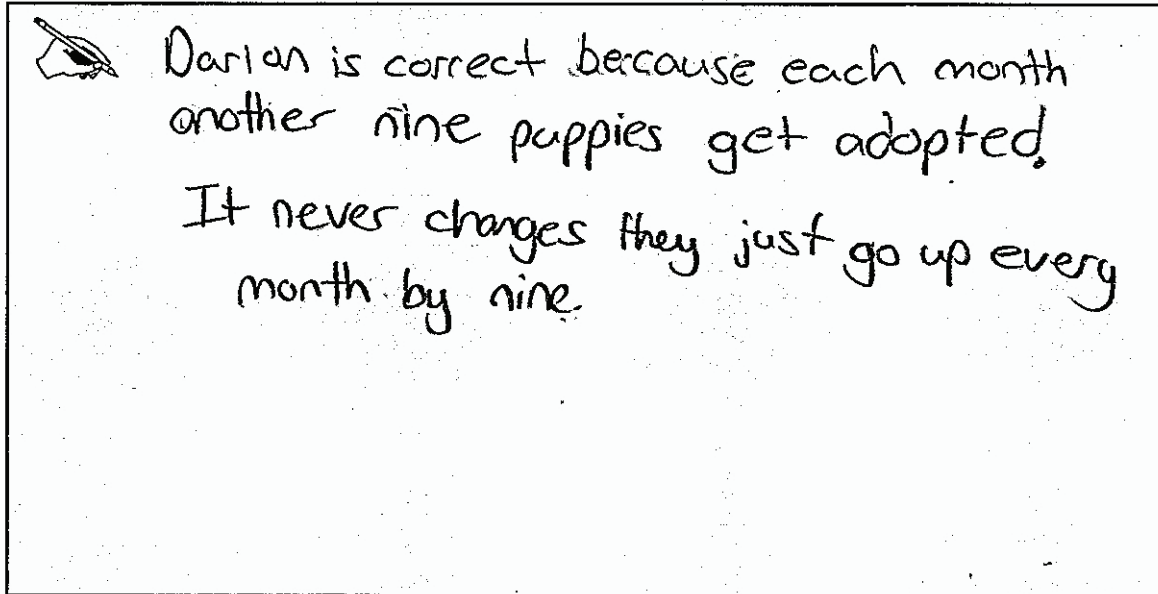 Darian is correct because each month
another nine puppies get adopted.
It never changes they just go up every
month by nine.